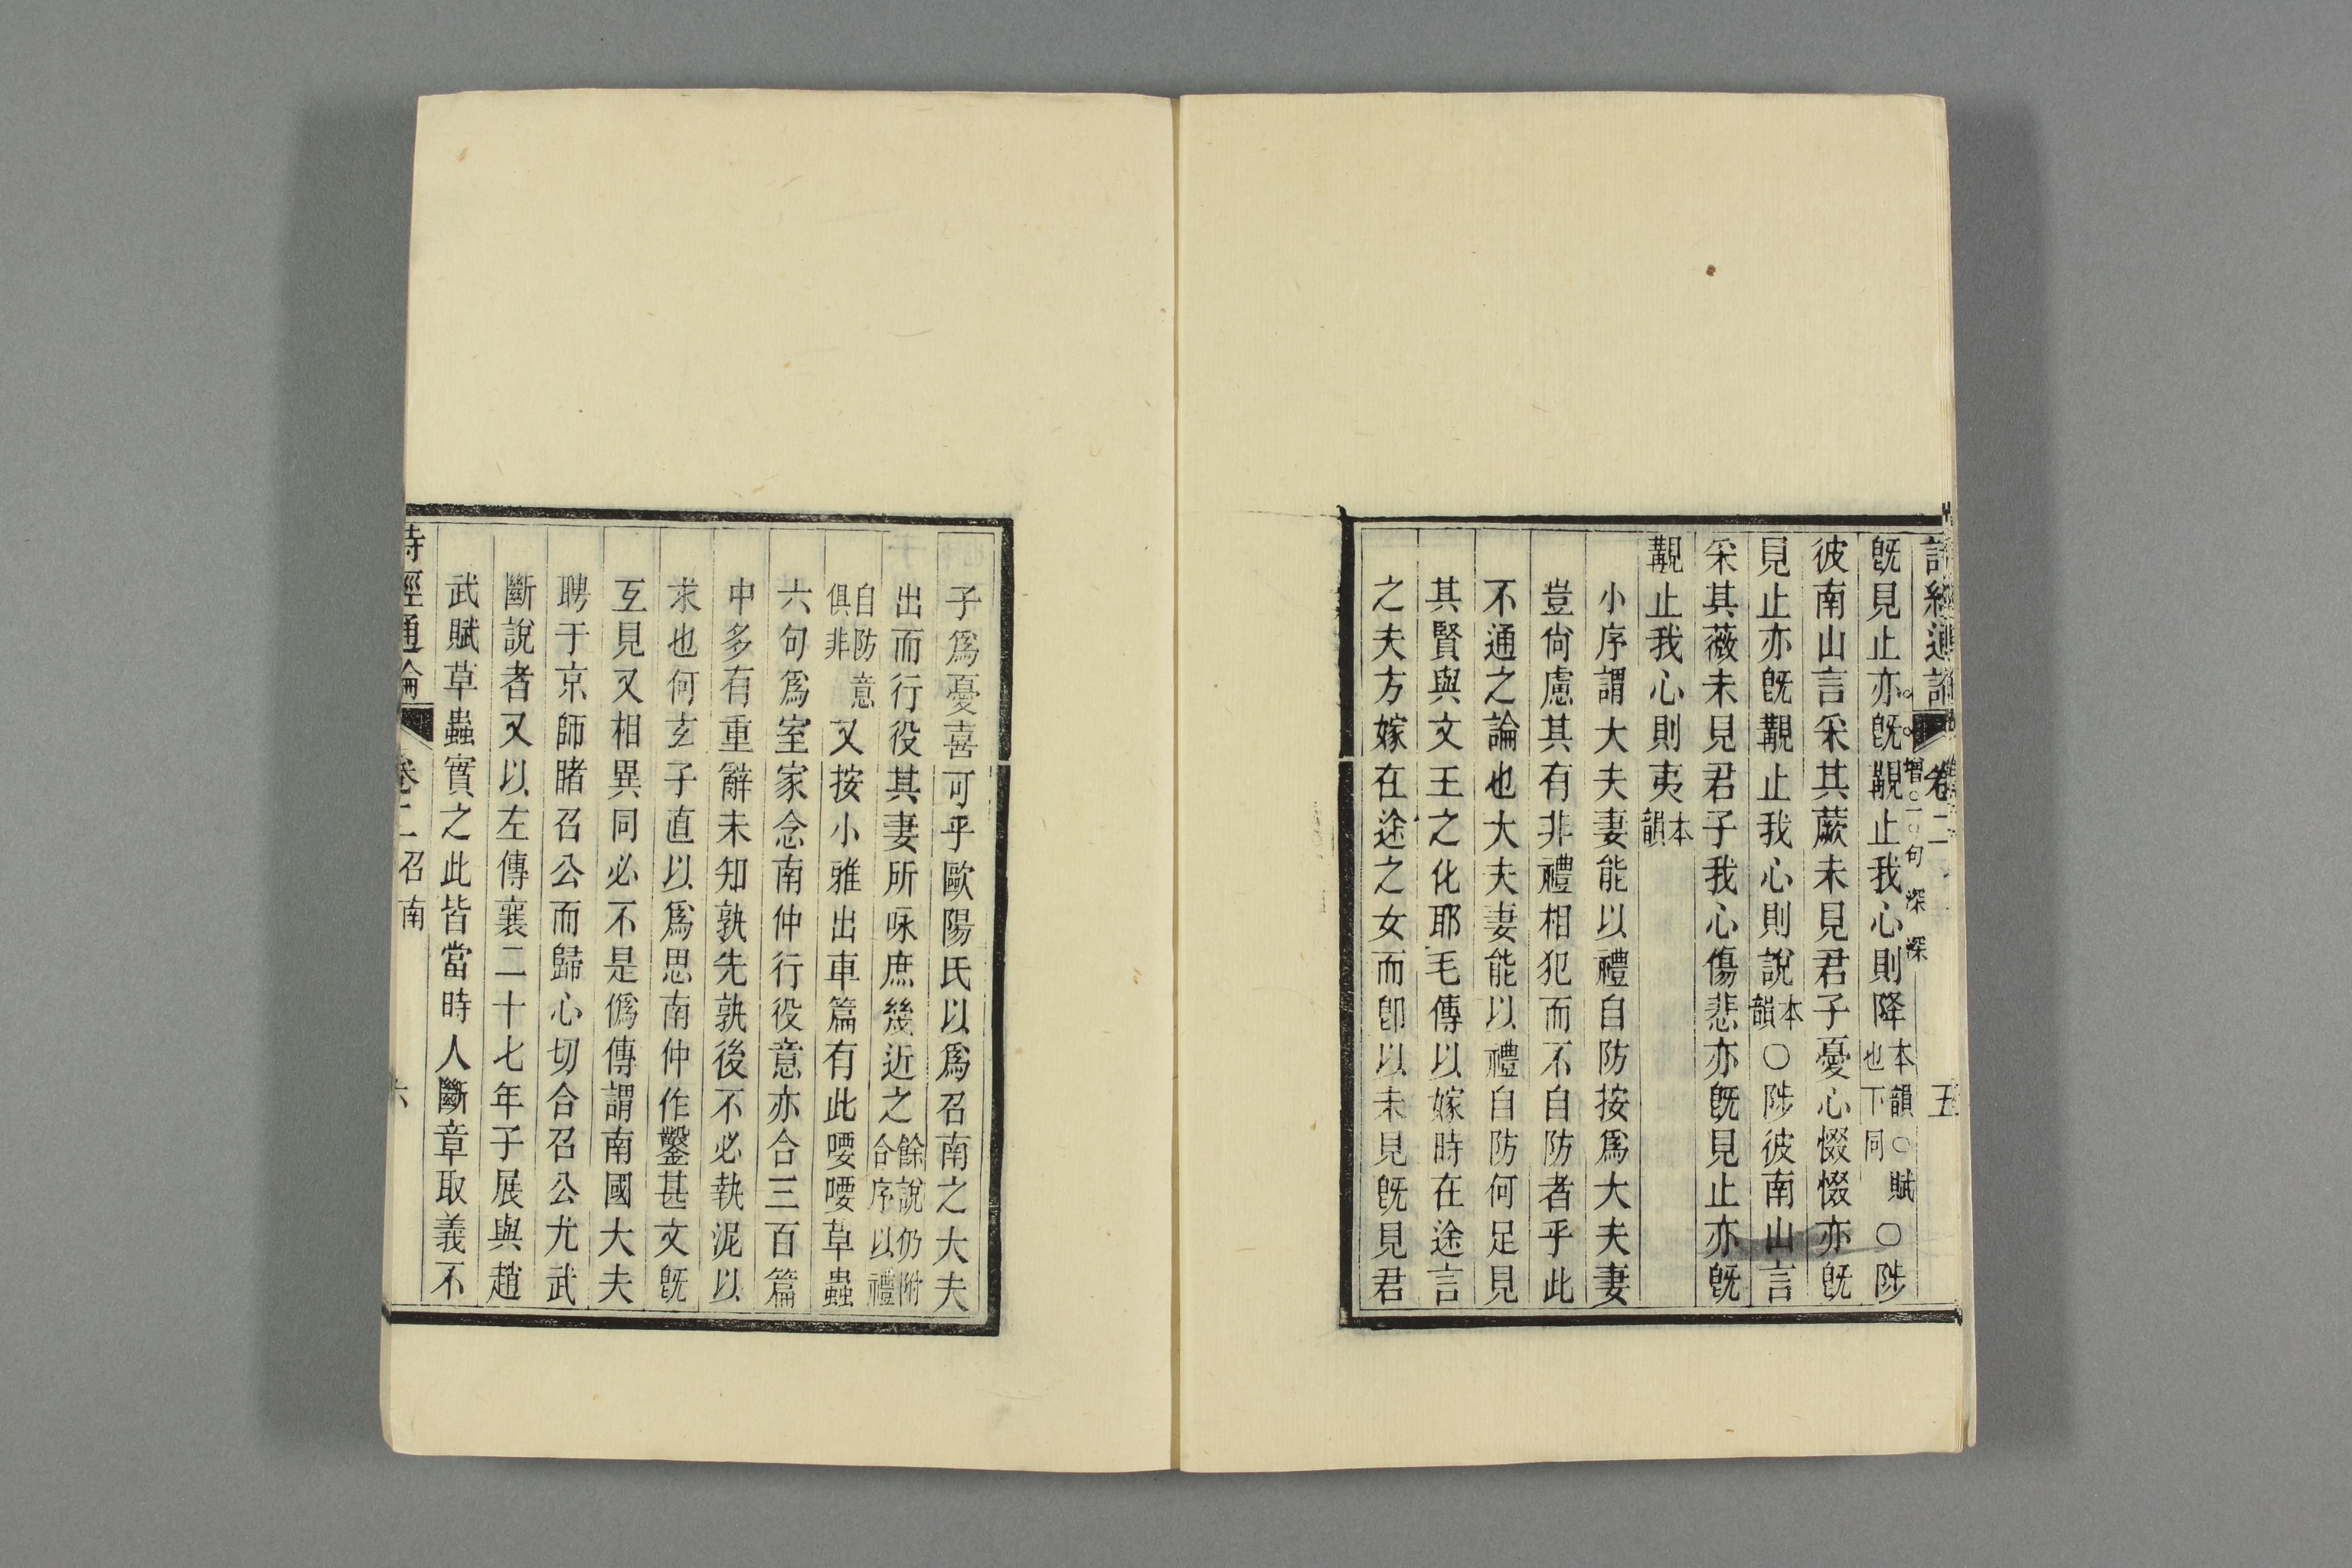 詩經通論 卷二 五
旣見止亦旣覯止我心則降本韻○賦也下同○陟
增 句 深 深
彼南山言采其蕨未見君子憂心惙惙亦旣
見止亦旣覯止我心則說本韻○陟彼南山言
采其薇未見君子我心傷悲亦旣見止亦旣
覯止我心則夷本韻
小序謂大夫妻能以禮自防按爲大夫妻
豈尚慮其有非禮相犯而不自防者乎此
不通之論也大夫妻能以禮自防何足見
其賢與文王之化耶毛傳以嫁時在途言
之夫方嫁在途之女而卽以未見旣見君
子爲憂喜可乎歐陽氏以爲召南之大夫
出而行役其妻所咏庶幾近之餘說仍附合序以禮
自防意俱非又按小雅出車篇有此喓喓草蟲
六句爲室家念南仲行役意亦合三百篇
中多有重辭未知孰先孰後不必執泥以
求也何玄子直以爲思南仲作鑿甚文旣
互見又相異同必不是僞傳謂南國大夫
聘于京師睹召公而歸心切合召公尤武
斷說者又以左傳襄二十七年子展與趙
武賦草蟲實之此皆當時人斷章取義不
詩經通論 卷二召南 六